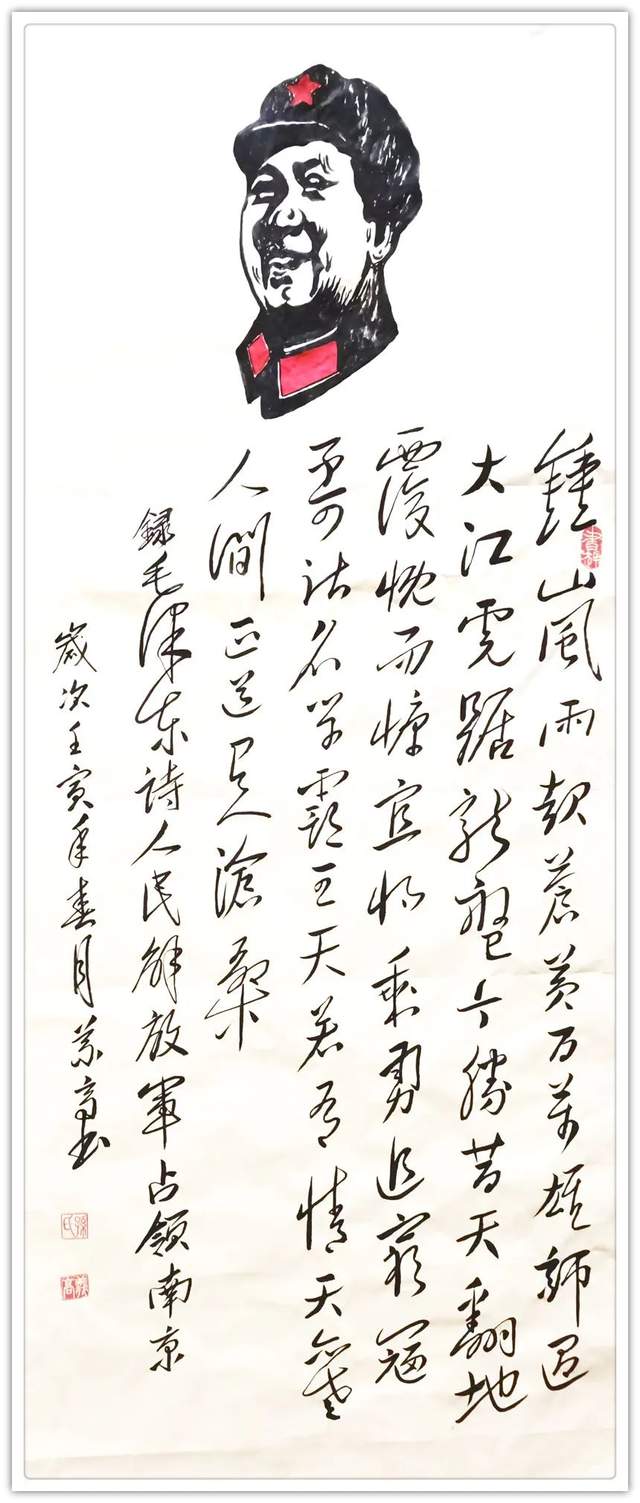 鍾山風雨起蒼黃百萬雄師過
大江虎踞龍盤今勝昔天翻地
覆慨而慷宜將剩勇追窮寇
不可沽名學霸王天若有情天亦老
人間正道是滄桑
録毛澤東詩人民解放軍占領南京
歲次壬寅年春月義高書
孫氏
義高